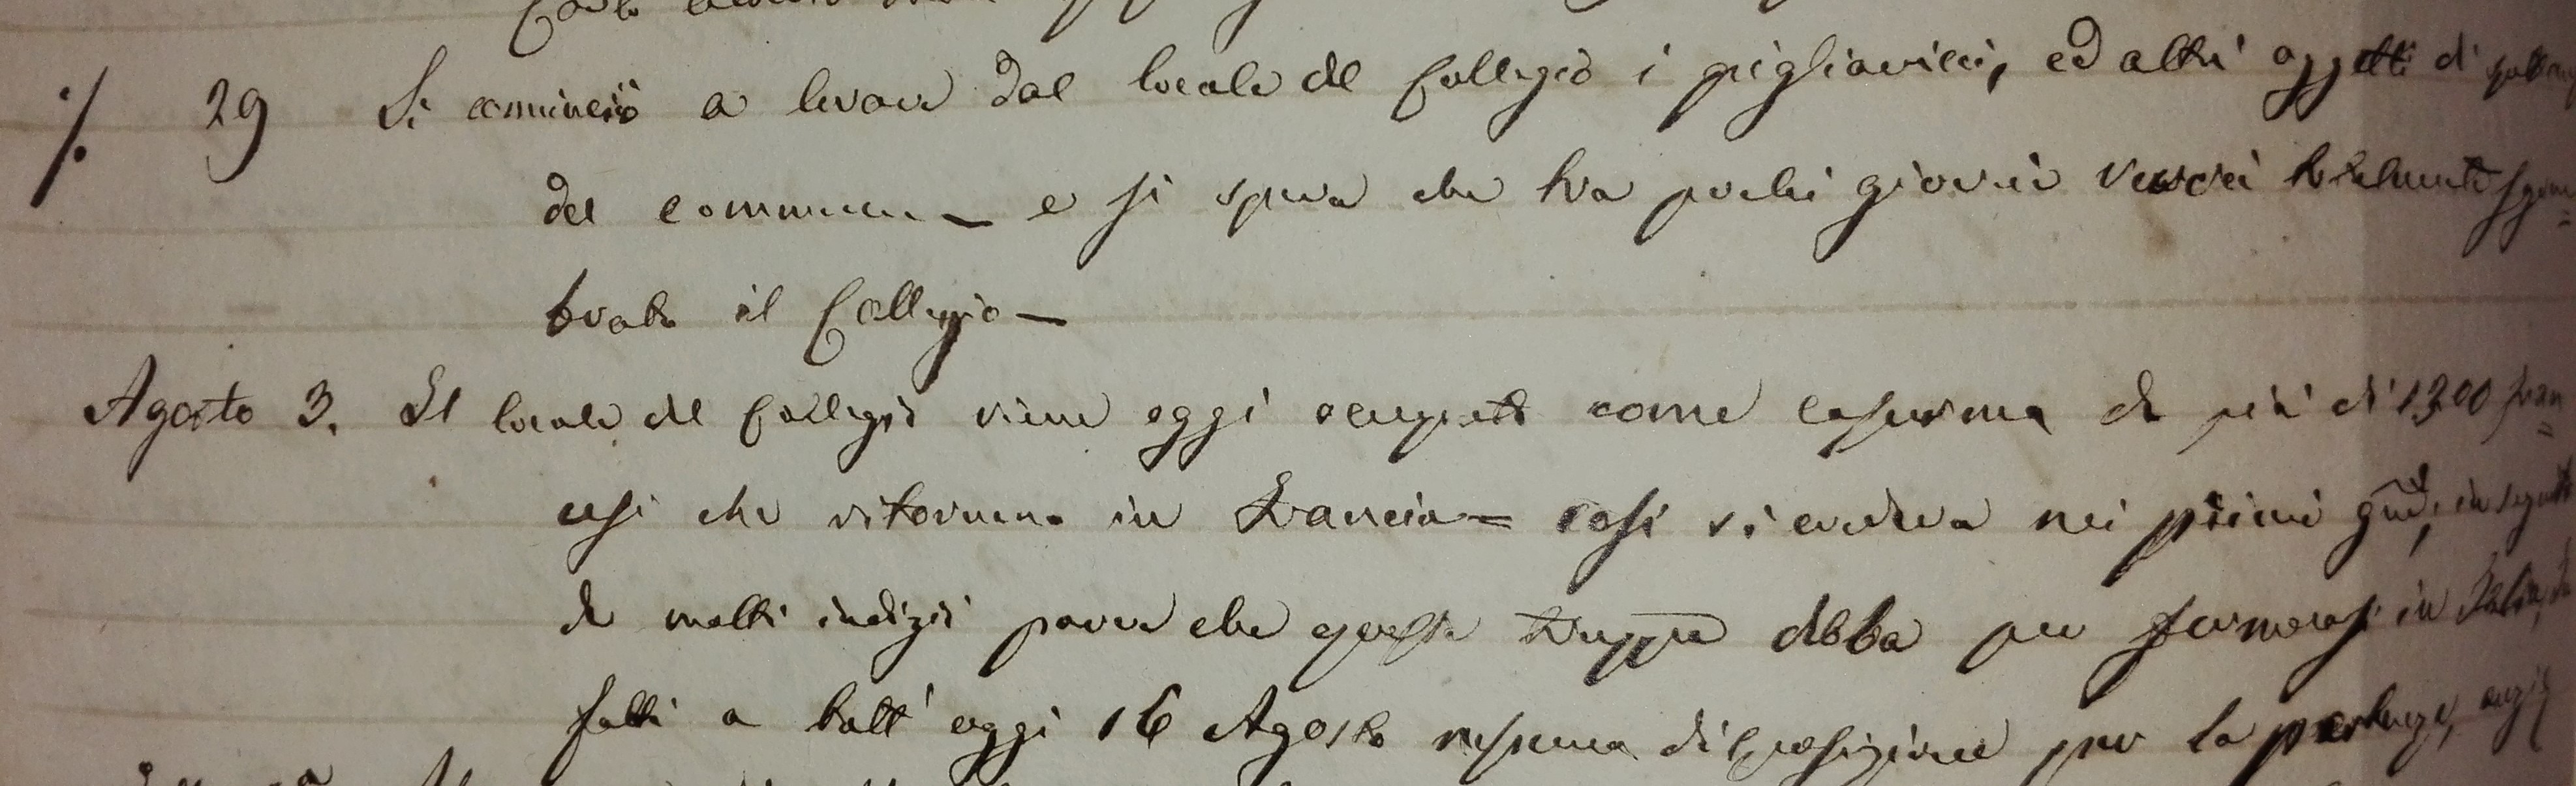 ./. 29 Si cominciò a levare dal locale del Collegio i pigliaricci, ed altri oggetti di
del commune — e si spera che tra pochi giorni verrà totalmente sgom=
brato il Collegio —
Agosto 3. Il locale del Collegio viene oggi occupato come caserma da più di 1300 fran=
cesi che ritornano in Francia = così si credeva nei primi gni, in seguito
da molti indizii pare che questa truppa debba per fermarsi in Italia, di
fatti a tutt'oggi 16 Agosto nessuna disposizione per la partenza, anzi